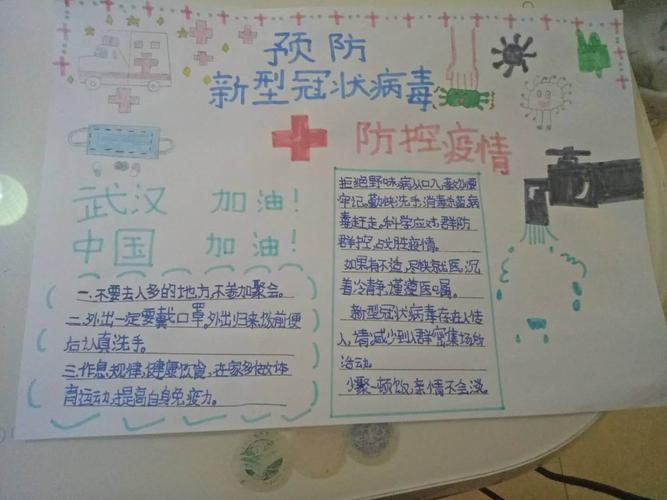 预防
新型冠状病毒
防控疫情
武汉 加油!
中国 加油!
一.不要去人多的地方,不参加聚会。
二.外出一定要戴口罩,外出归来,饭前便
后认真洗手。
三.作息规律,健康饮食,在家多做体
育运动,提高自身免疫力。
拒绝野味,病从口入,要
牢记。勤快洗手,消毒杀菌,病
毒赶走。科学应对,群防
群控,战胜疫情。
如果有不适,尽快就医,沉
着冷静,谨遵医嘱。
新型冠状病毒存在人传
人,请减少到人群密集场所
活动。
少聚一顿饭,亲情不会淡。